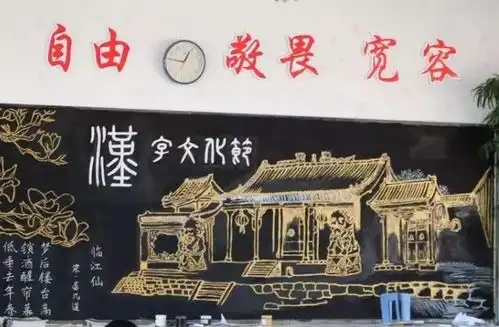 自由 敬畏 宽容
漢字文化節
临江仙
宋 晏几道
梦后楼台高
锁酒醒帘幕
低垂去年春